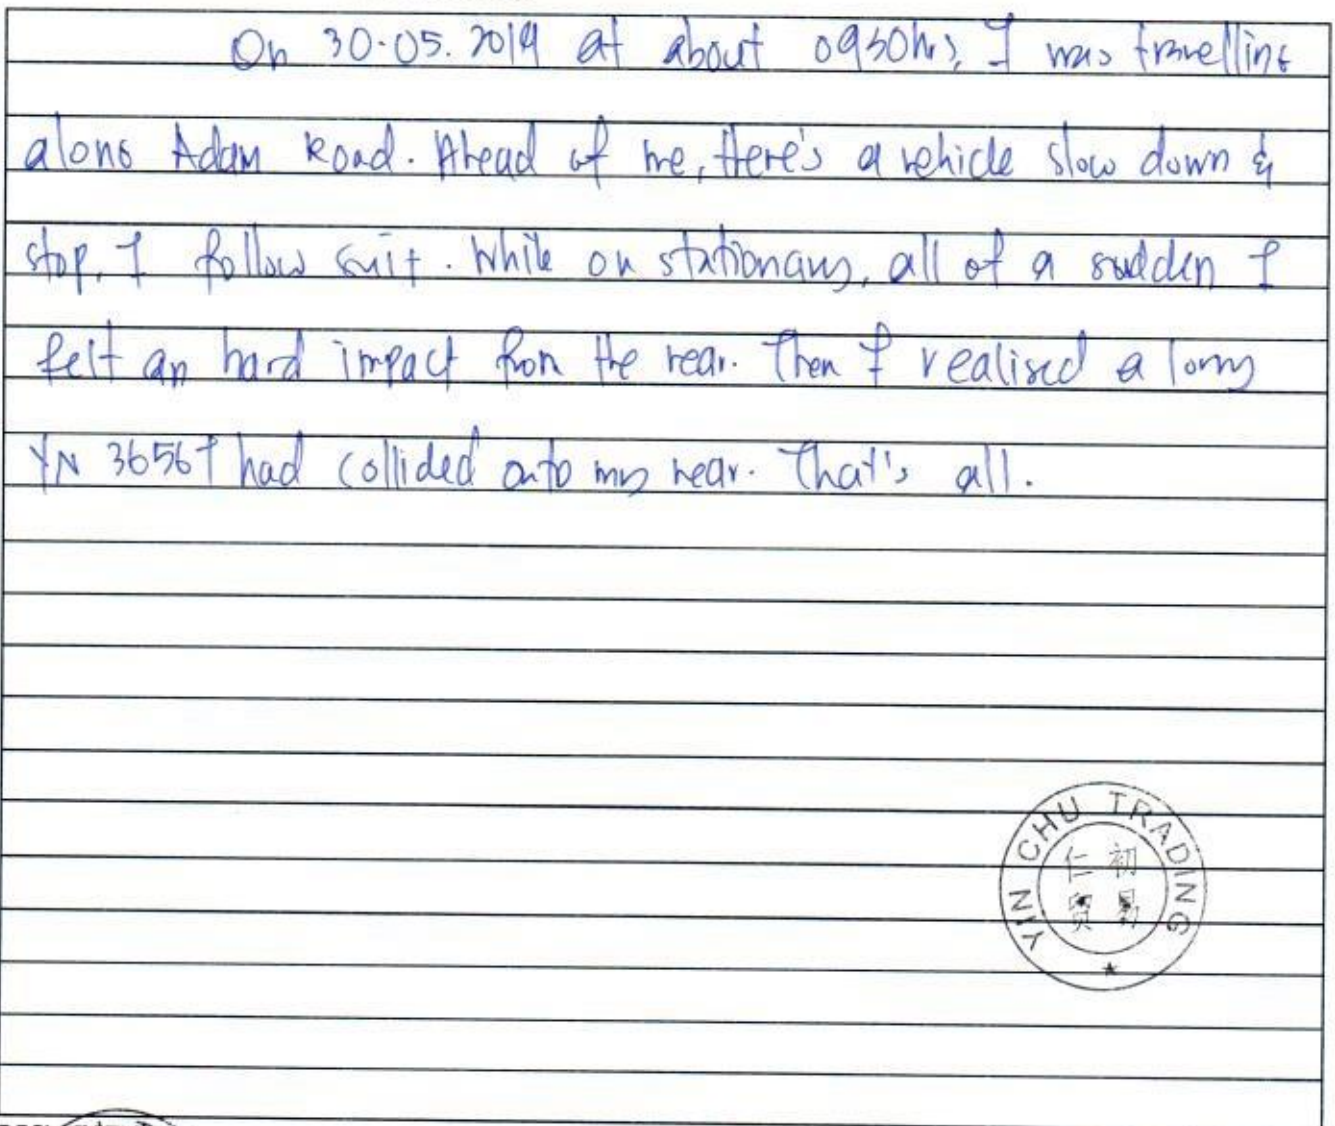 On 30.05.2019 at about 0930hrs, I was travelling
along Adam Road. Ahead of me, there's a vehicle slow down &
stop. I follow suit. While on stationary, all of a sudden I
felt an hard impact from the rear. Then I realised a lorry
YN 3656T had collided onto my rear. That's all.
YIN CHU TRADING
仁 初
贸 易